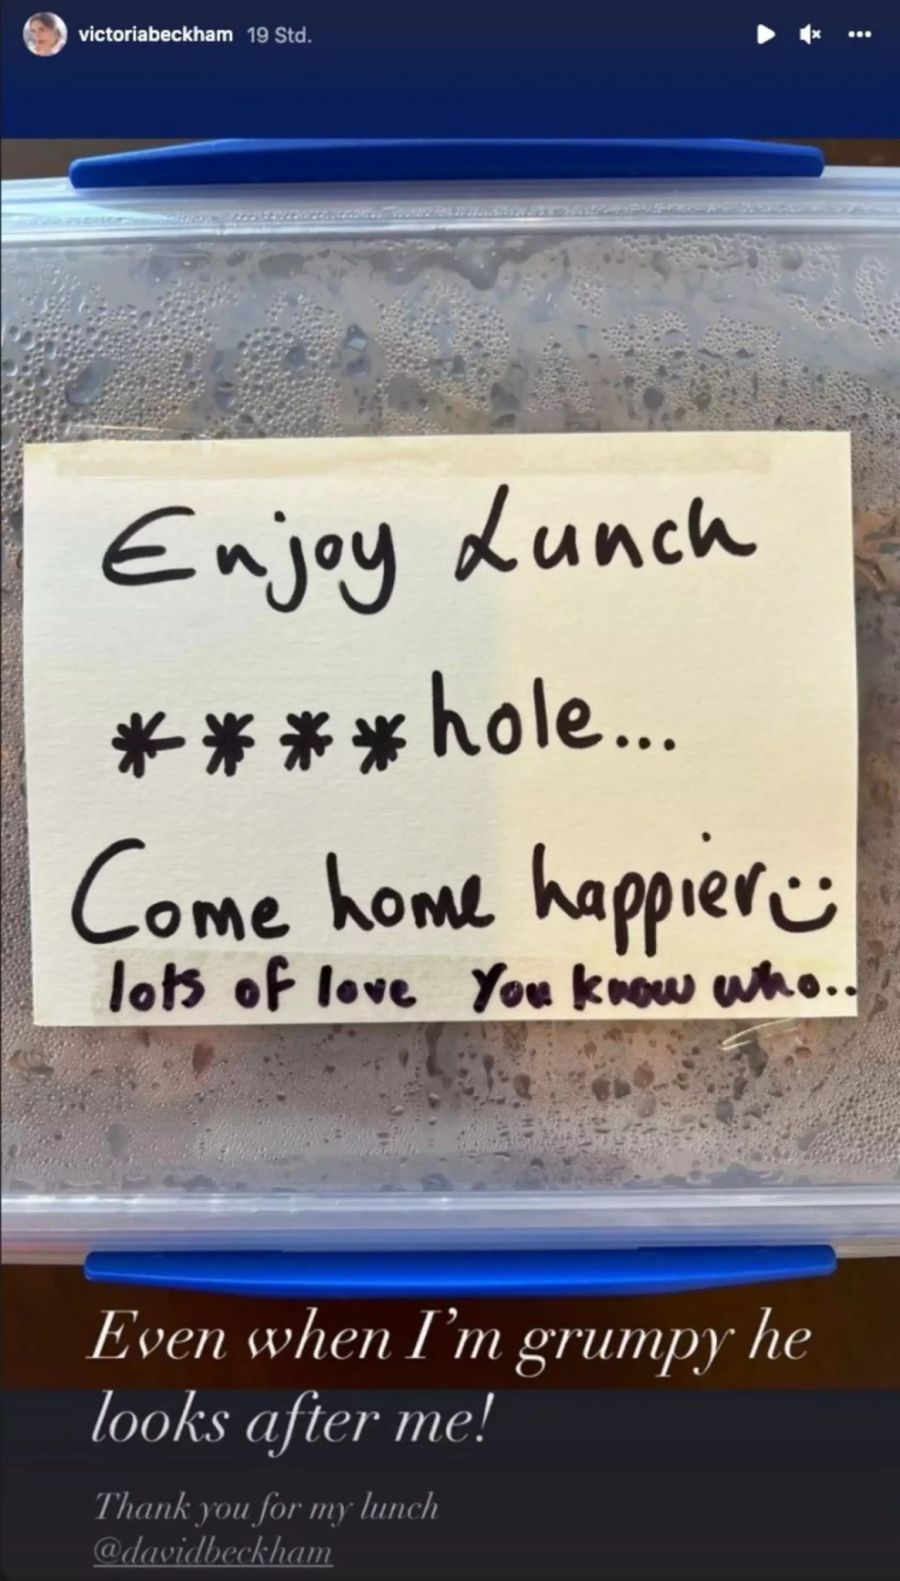 victoriabeckham 19 Std.
Enjoy Lunch
****hole...
Come home happier
lots of love You know who..
Even when I'm grumpy he
looks after me!
Thank you for my lunch
@davidbeckham